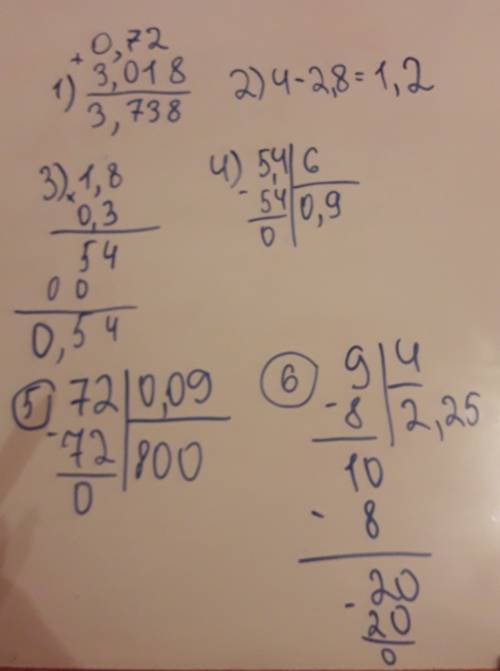 + 0,72
1) 3,018
3,738
2) 4-2,8=1,2
3) × 1,8
0,3
54
00
0,54
4) 5,4 | 6
- 54 | 0,9
0
5 72 | 0,09
- 72 | 800
0
6 9 | 4
- 8 | 2,25
10
- 8
- 20
20
0